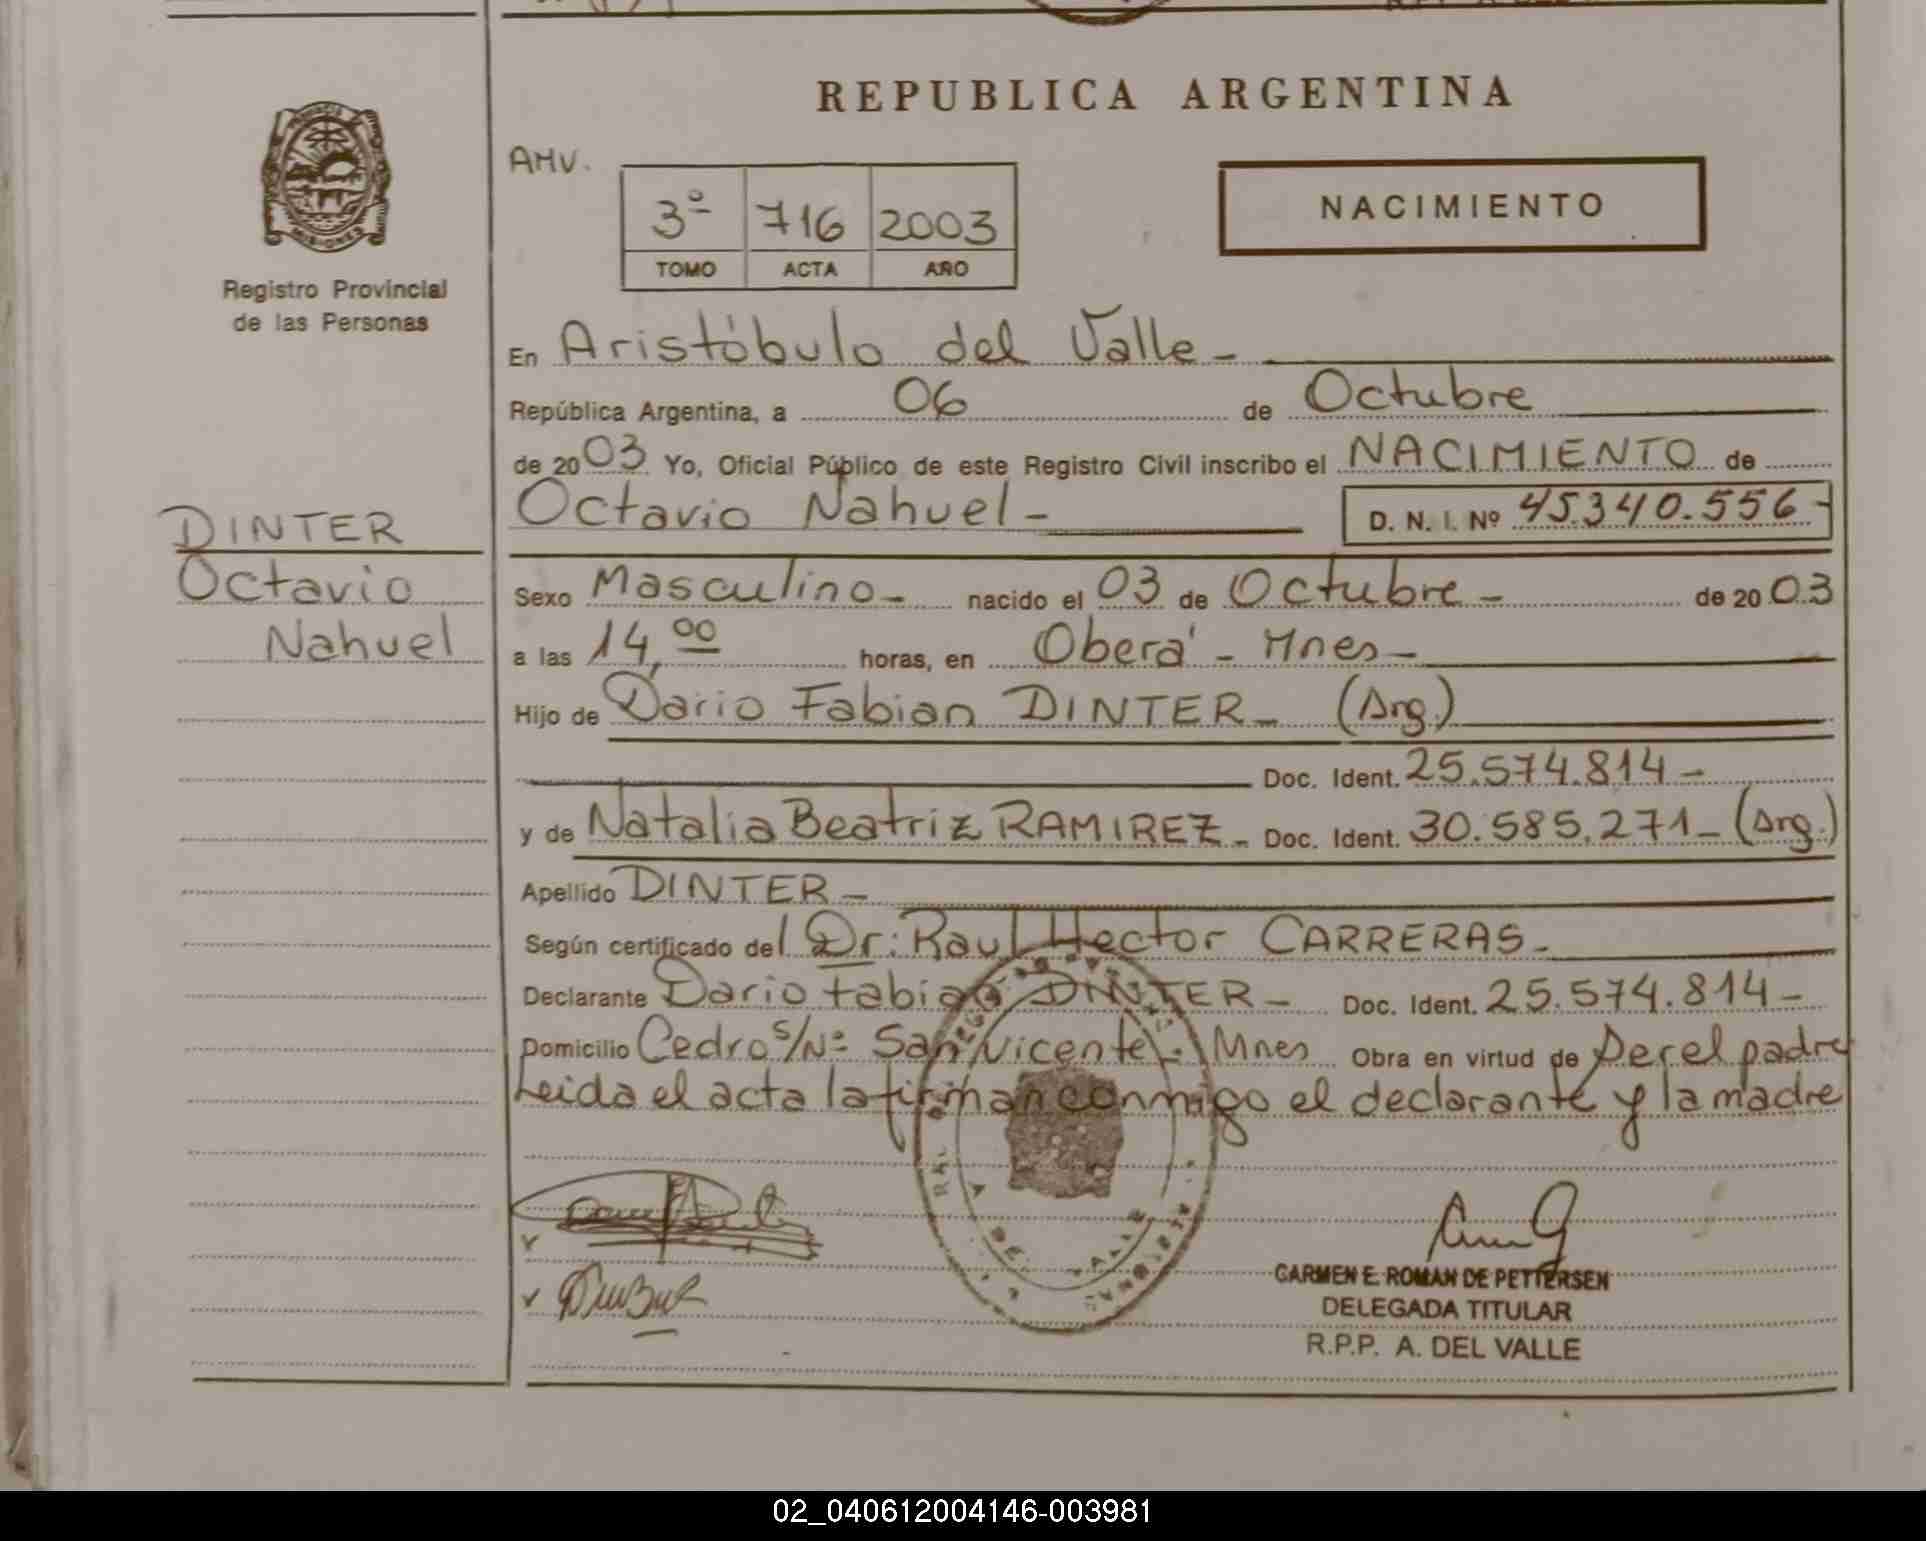 REPUBLICA ARGENTINA
PROVINCIA
MISIONES
Registro Provincial
de las Personas
AMV.
3º 716 2003
TOMO ACTA AÑO
NACIMIENTO
En Aristóbulo del Valle -
República Argentina, a 06 de Octubre
de 2003 Yo, Oficial Público de este Registro Civil inscribo el NACIMIENTO de
Octavio Nahuel - D. N. I. Nº 45.340.556-
DINTER
Octavio
Nahuel
Sexo Masculino - nacido el 03 de Octubre - de 2003
a las 14,00 horas, en Oberá - Mnes -
Hijo de Dario Fabian DINTER - (Arg.)
Doc. Ident. 25.574.814 -
y de Natalia Beatriz RAMIREZ - Doc. Ident. 30.585.271 - (Arg.)
Apellido DINTER -
Según certificado del Dr: Raul Hector CARRERAS -
Declarante Dario Fabian DINTER - Doc. Ident. 25.574.814 -
Domicilio Cedro s/Nº San Vicente - Mnes Obra en virtud de Ser el padre
Leida el acta la firman conmigo el declarante y la madre
A DEL VALLE
CARMEN E. ROMAN DE PETTERSEN
DELEGADA TITULAR
R.P.P. A. DEL VALLE
02_040612004146-003981